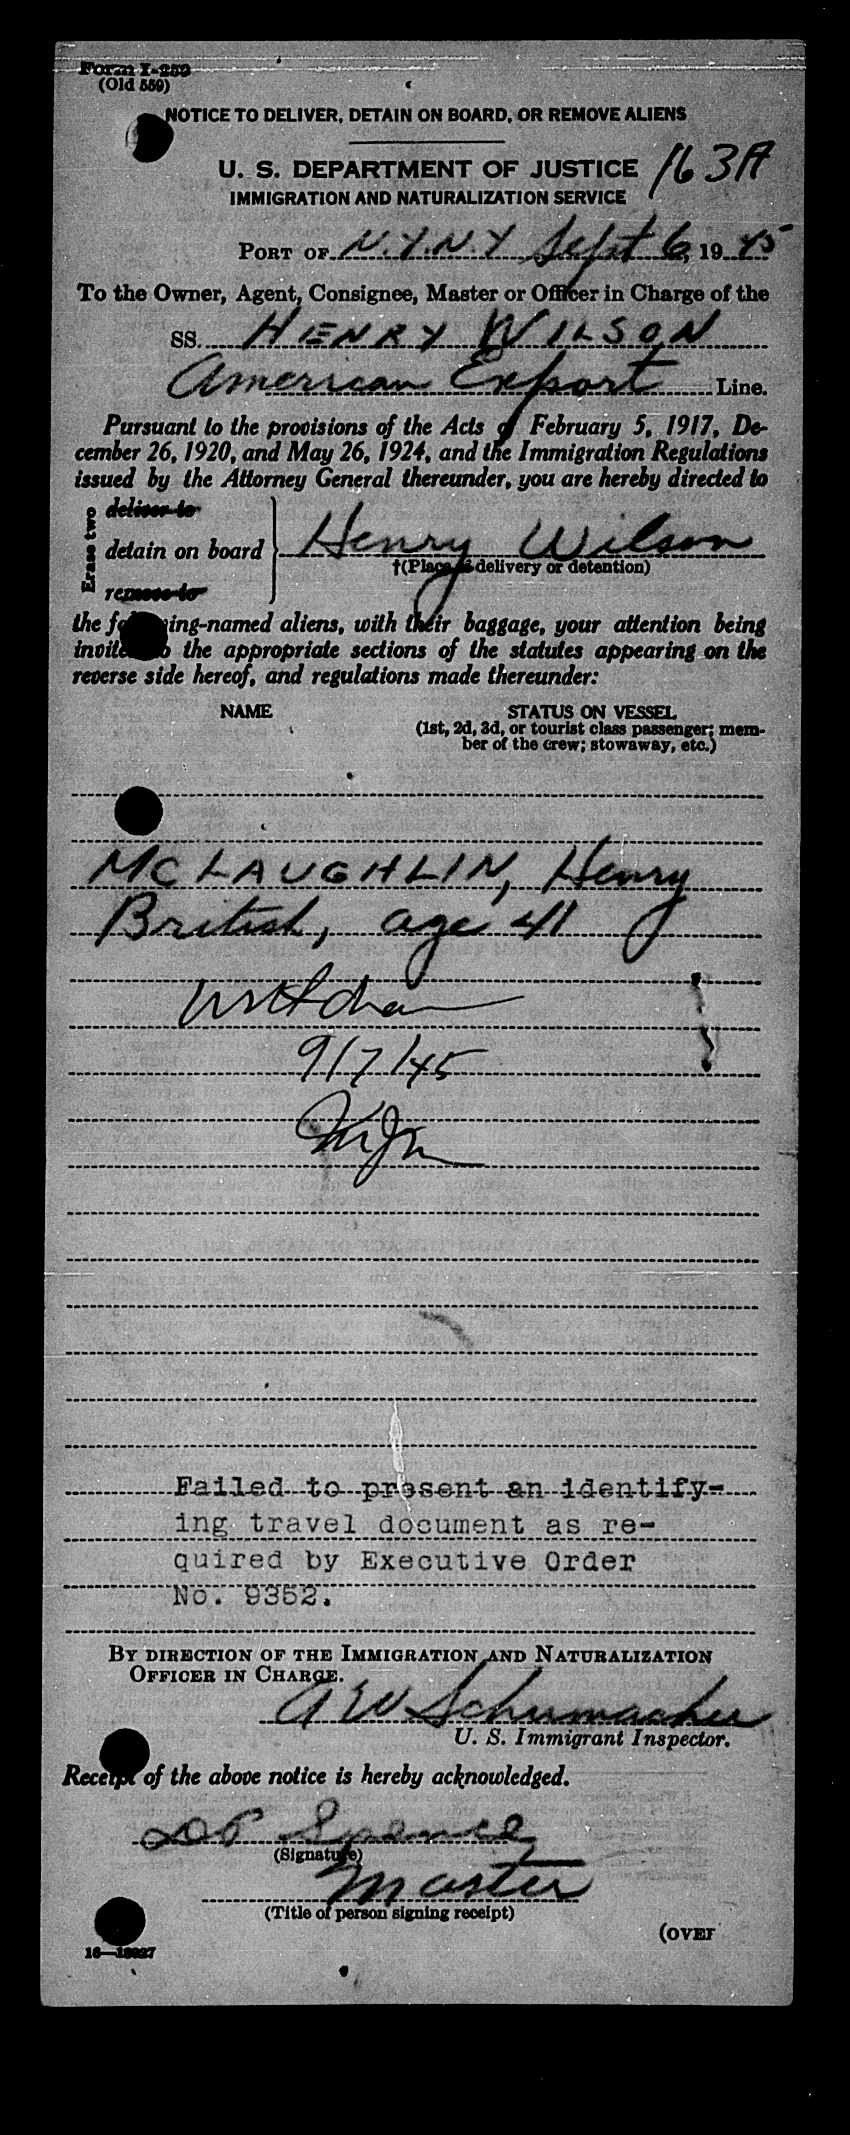 Form I-259
(Old 559)
NOTICE TO DELIVER, DETAIN ON BOARD, OR REMOVE ALIENS
U. S. DEPARTMENT OF JUSTICE 163A
IMMIGRATION AND NATURALIZATION SERVICE
PORT OF N.Y.N.Y Sept 6, 1945
To the Owner, Agent, Consignee, Master or Officer in Charge of the
SS. HENRY WILSON
American Export Line.
Pursuant to the provisions of the Acts of February 5, 1917, De-
cember 26, 1920, and May 26, 1924, and the Immigration Regulations
issued by the Attorney General thereunder, you are hereby directed to
Erase two
deliver to
detain on board Henry Wilson
†(Place of delivery or detention)
remove to
the following-named aliens, with their baggage, your attention being
invited to the appropriate sections of the statutes appearing on the
reverse side hereof, and regulations made thereunder:
NAME STATUS ON VESSEL
(1st, 2d, 3d, or tourist class passenger; mem-
ber of the crew; stowaway, etc.)
MCLAUGHLIN, Henry
British, age 41
9/7/45
Failed to present an identify-
ing travel document as re-
quired by Executive Order
No. 9352.
BY DIRECTION OF THE IMMIGRATION AND NATURALIZATION
OFFICER IN CHARGE.
A W Schumacher
U. S. Immigrant Inspector.
Receipt of the above notice is hereby acknowledged.
Spence
(Signature)
Master
(Title of person signing receipt)
(OVER
16—18927